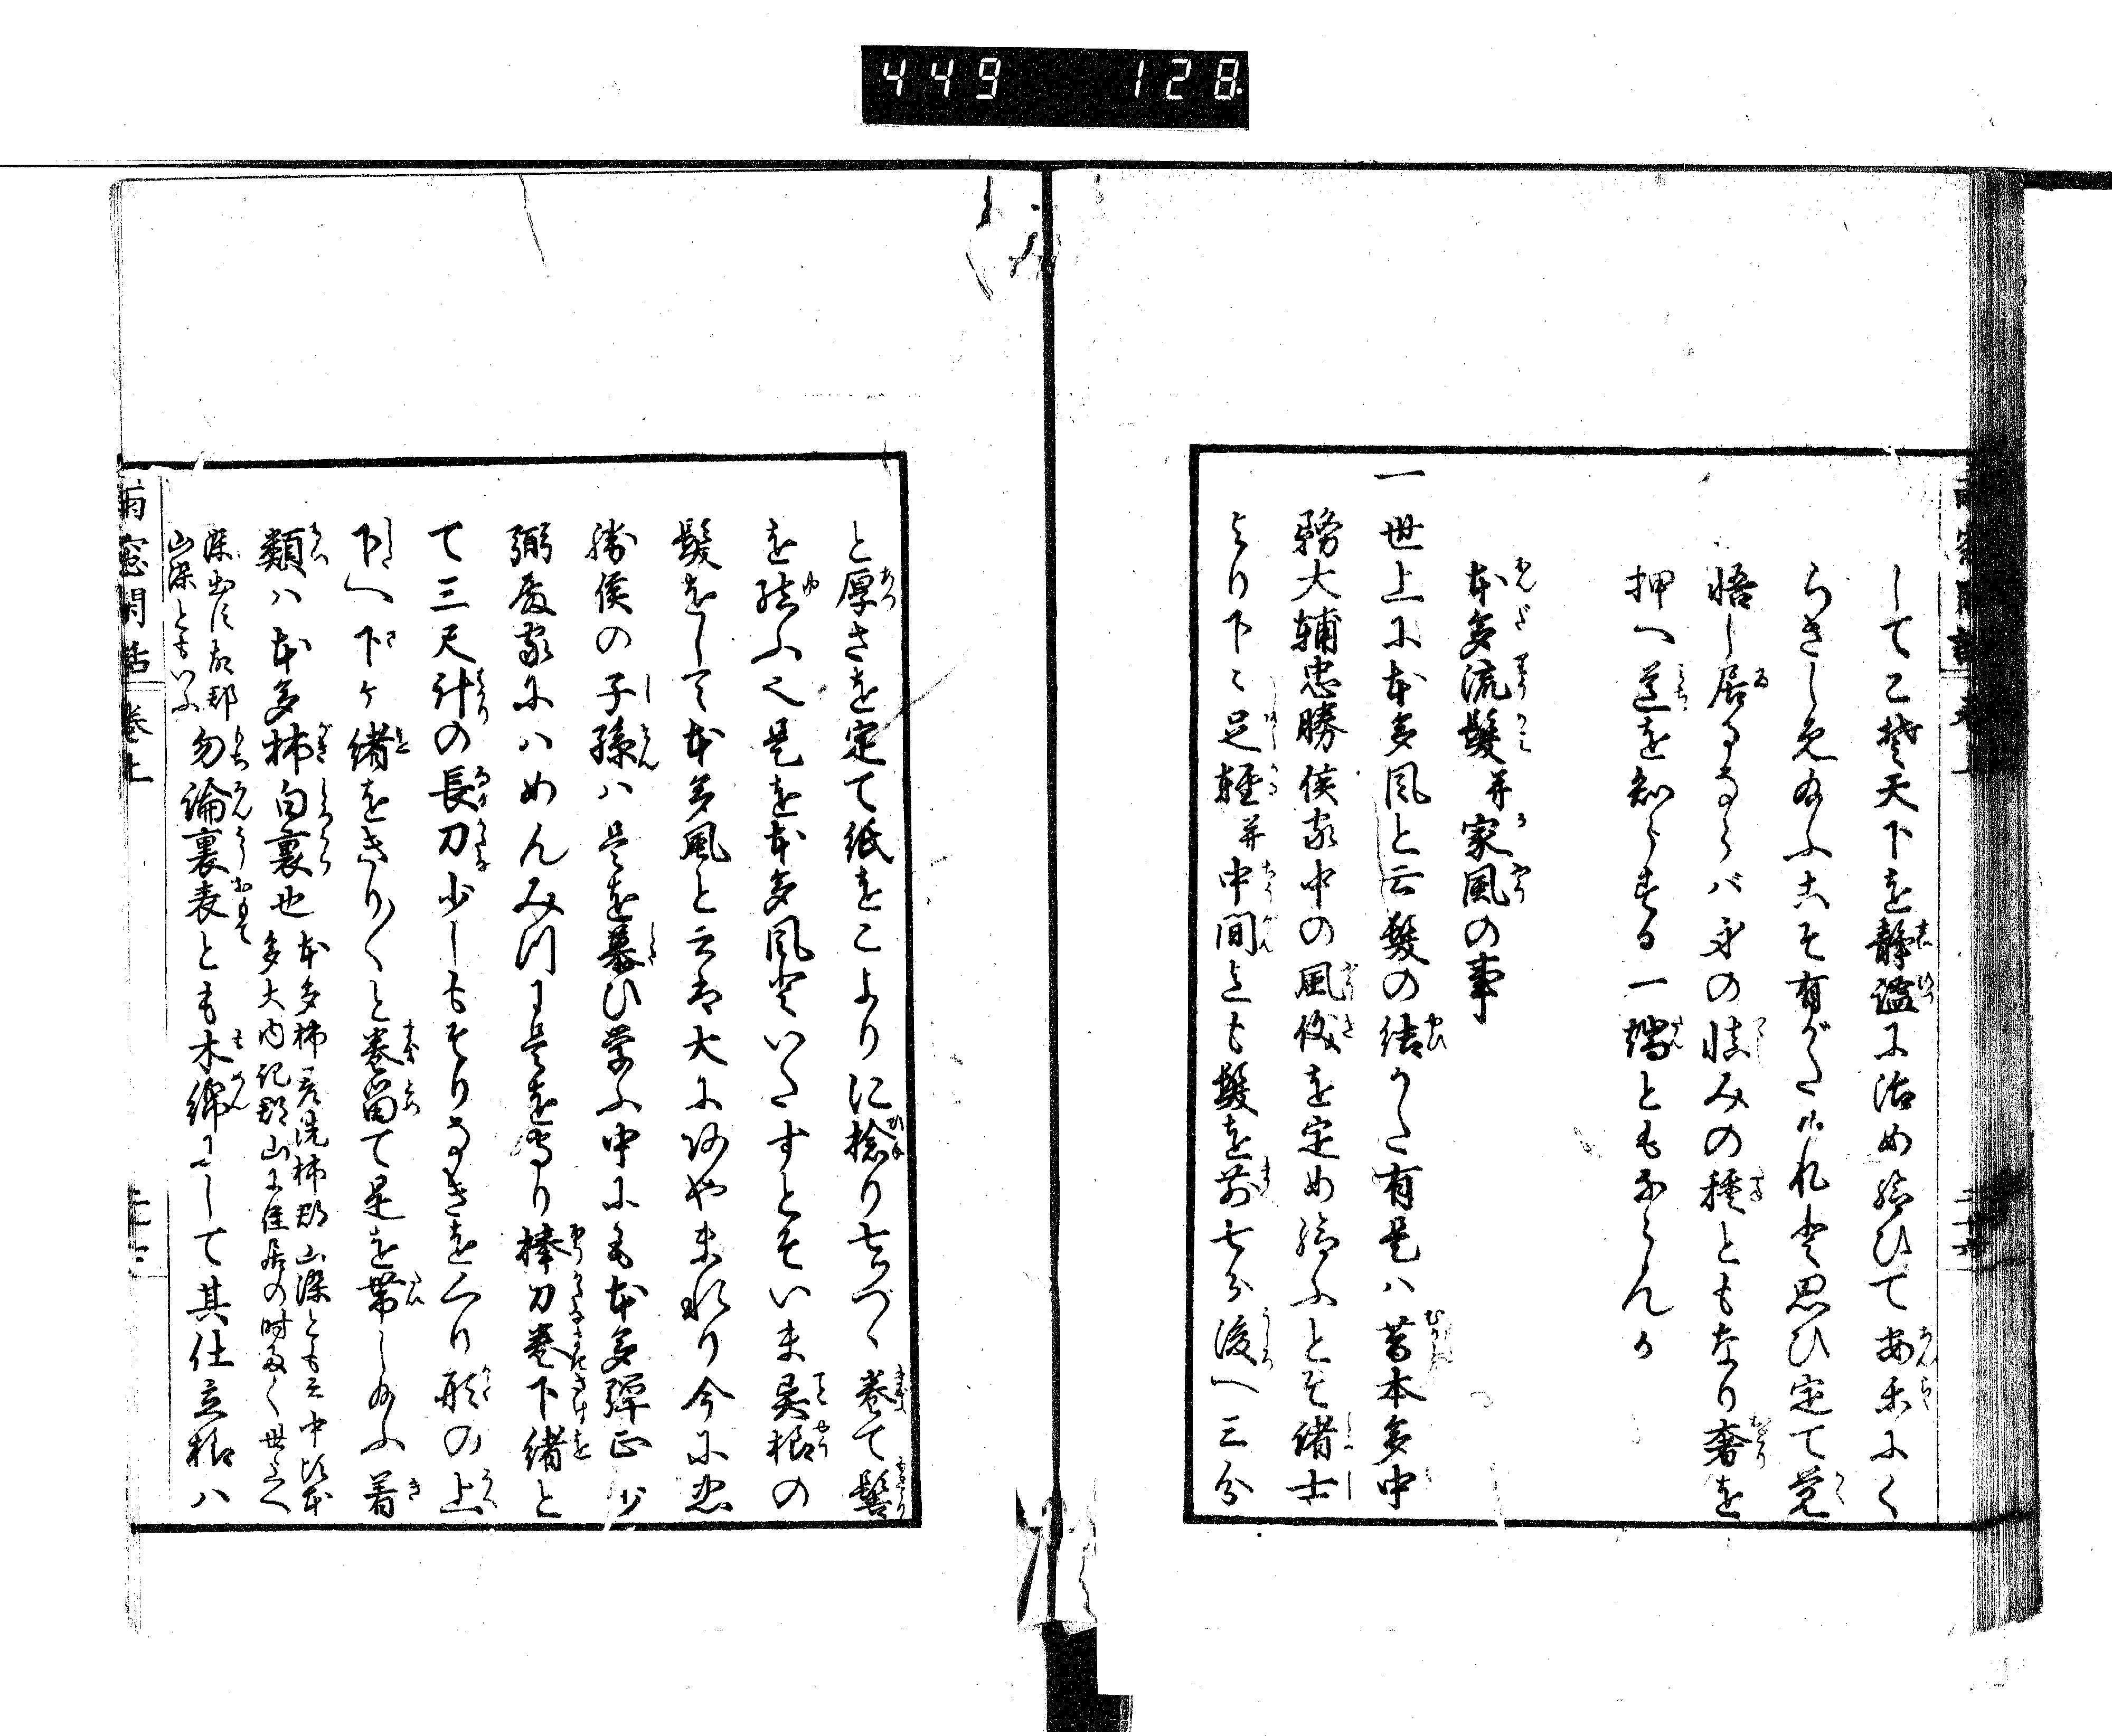 449 128
してこそ天下を静謐に治め給ひて安楽にく
らさしめ給ふこそ有がたけれと思ひ定て覚
悟し居るならバ身の慎みの種ともなり奢を
押へ道を知らする一端ともならんか
本多流髪并家風の事
一世上に本多風と云髪の結かた有是ハ昔本多中
務大輔忠勝侯家中の風儀を定め給ふとぞ諸士
より下々足軽并中間迄も髪を前七分後へ三分
と厚さを定て紙をこよりに捻り七ツヽ巻て髻
を結ふ也是を本多風といたすとぞいま異様の
髪をして本多風と云は大にあやまれり今に忠
勝侯の子孫ハ是を慕ひ学ふ中にも本多弾正少
弼殿家にハめんみつに是を守り棒刀巻下緒と
て三尺計の長刀少しもそりなきをくり形の上
下へ下ケ緒をきり〱と巻留て是を帯し給ふ着
類ハ本多柿白裏也
本多柿一名洗柿郡山染とも云中比本
多大内記郡山に住居の時多く世上へ
染出す故郡
山染ともいふ
勿論裏表とも木綿にして其仕立様ハ
雨窓閑話 巻上